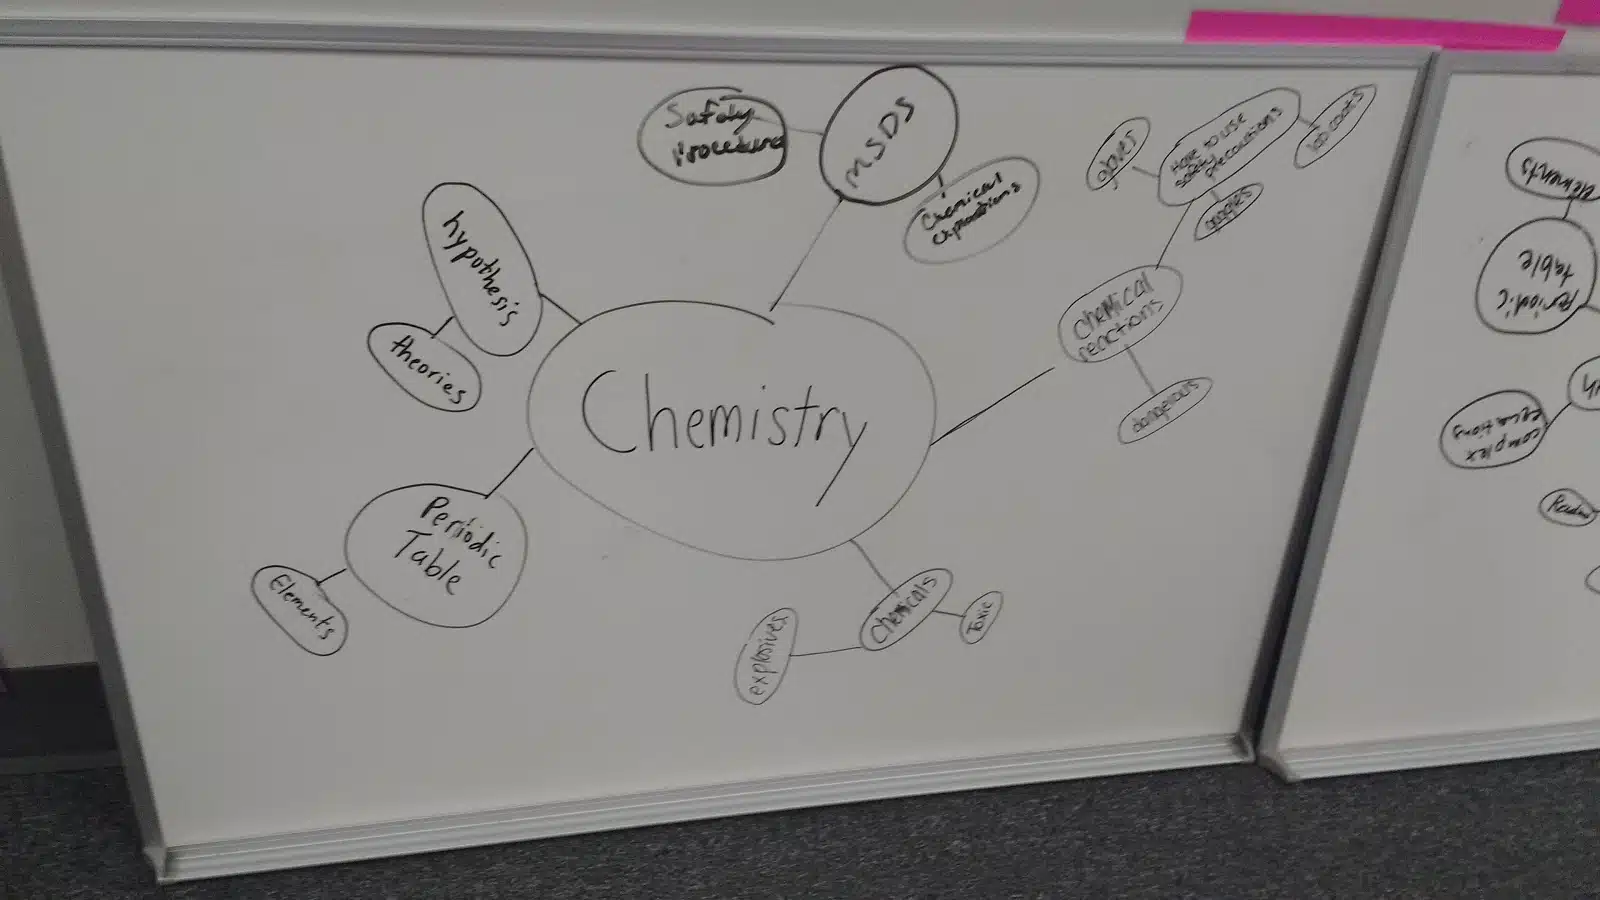 Safety
Procedure
MSDS
Chemical
explanations
hypothesis
theories
Chemistry
Periodic
Table
Elements
Chemicals
explosives
Toxic
Chemical
reactions
dangerous
Have to use
safety
precautions
gloves
goggles
lab coats
elements
Periodic
table
complex
equations